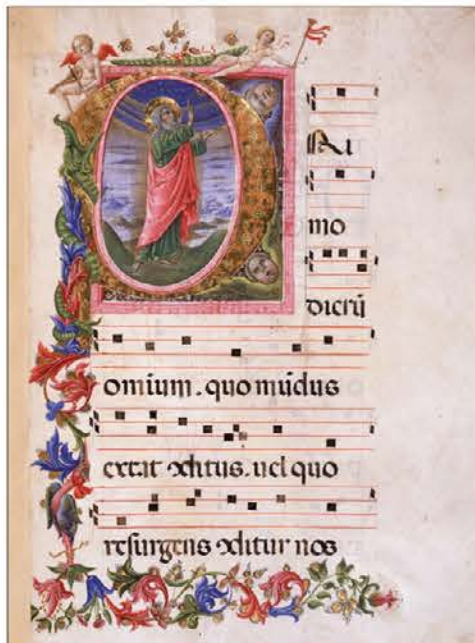 P
RI
mo
dierũ
omium. quo mũdus
extat ꝯditus. uel quo
resurgens ꝯditur nos